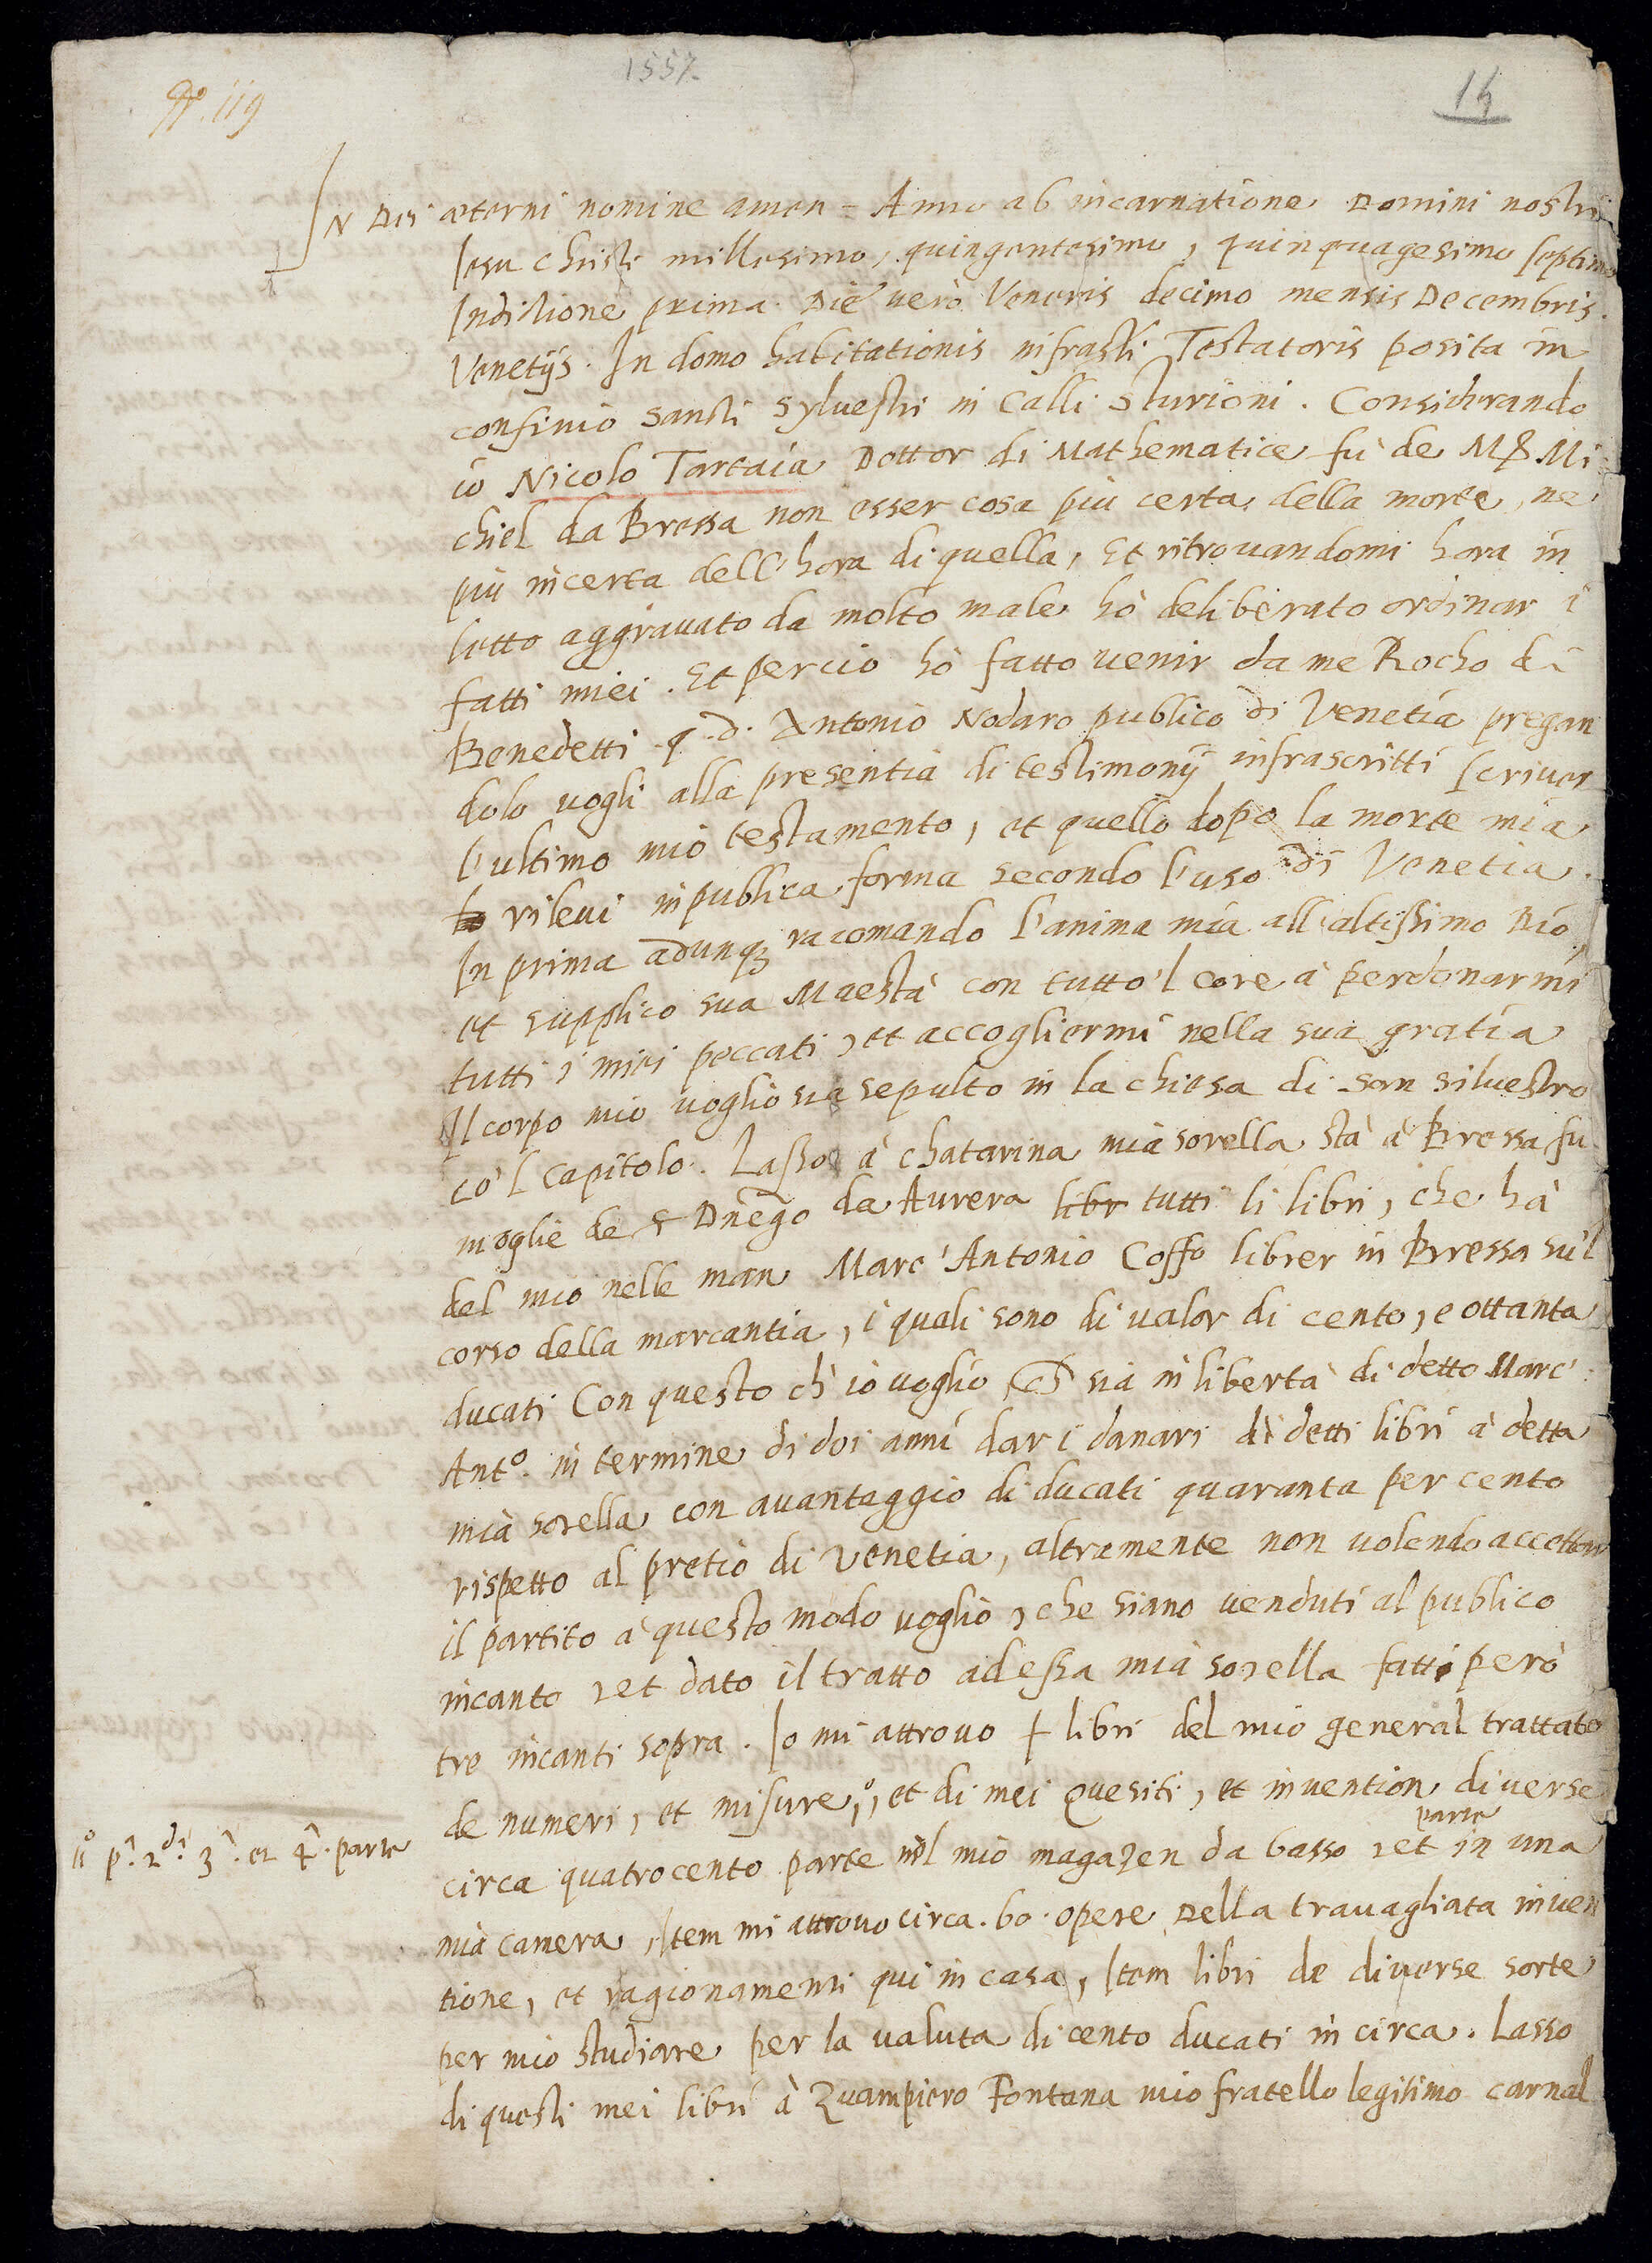 1557.
N.º 119
15
IN Dei æterni nomine amen - Anno ab incarnatione Domini nostri
Jesu christi millesimo, quingentesimo, quinquagesimo septimo
Inditione prima. Die verò Veneris decimo mensis Decembris.
Venetijs. In domo habitationis infrasti Testatoris posita in
confinio sancti sylvestri in Calli Sturioni. Considerando
io Nicolo Tartaia Dottor di Mathematice fù de Mr Mi
chiel da Bressa non esser cosa più certa della morte, ne
più incerta dell'hora di quella, Et ritrouandomi hora in
letto aggrauato da molto male hò deliberato ordinar i
fatti miei. Et percio hò fatto venir da me Rocho di
Benedetti q. d. Antonio Nodaro publico di Venetia pregan
dolo vogli alla presentia di testimonij infrascritti scriuer
l'ultimo mio testamento, et quello dopo la morte mia
rileui in publica forma secondo l'uso di Venetia.
In prima adunq; racomando l'anima mia all'altissimo Dio,
et supplico sua Maestà con tutto'l core à perdonarmi
tutti i miei peccati, et accogliermi nella sua gratia
Il corpo mio voglio sia sepulto in la chiesa di san siluestro
co'l Capitolo. Lasso à chatarina mia sorella stà à Bressa fu
moglie de Dnego da Aurera libr tutti li libri, che hà
del mio nelle man Marc'Antonio Coffo librer in Bressa su'l
corso della marcantia, i quali sono di valor di cento, e ottanta
ducati Con questo ch'io voglio, che sia in libertà di detto Marc'
Antº. in termine di doi anni dar i danari di detti libri à detta
mia sorella con auantaggio di ducati quaranta per cento
rispetto al pretio di Venetia, altramente non volendo accettar
il partito à questo modo voglio, che siano venduti al publico
incanto, et dato il tratto ad essa mia sorella fatti però
tre incanti sopra. Io mi attrouo libri del mio general trattato
de numeri, et misure,º, et di mei Quesiti, et invention diverse
º pª. 2da. 3ª. et 4ª. parte
circa quatrocento parte nel mio magazen da basso, et parte in una
mia camera, Item mi attrouo circa .60. opere Della trauagliata inuen
tione, et ragionamenti qui in casa, Item libri de diverse sorte
per mio studiare per la valuta di cento ducati in circa. Lasso
di questi mei libri à Zuampiero Fontana mio fratello legitimo carnal